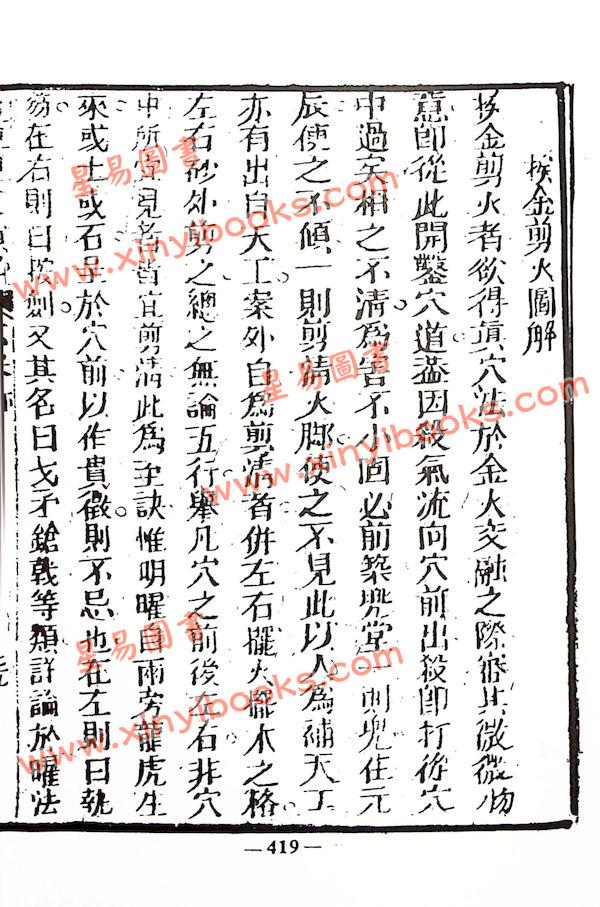 挨金剪火圖解
挨金剪火者欲得真穴法於金火交融之際審其微微吻
意即從此開鑿穴道蓋因殺氣流向穴前出殺即打從穴
中過矣相之不清為害不小固必前築兜堂一則兜住元
辰使之不傾一則剪清火腳使之不見此以人為補天工
亦有出自天工案外自為剪清者併左右擺火擺木之格
左右砂外剪之總之無論五行舉凡穴之前後左右非穴
中所宜見者皆宜剪清此為至訣惟明曜自兩旁龍虎生
來或土或石呈於穴前以作貴徵則不忌也在左則曰執
笏在右則曰按劍又其名曰戈矛鎗戟等類詳論於曜法
— 419 —
星易圖書
www.xinyibooks.com
星易圖書
www.xinyibooks.com
星易圖書
www.xinyibooks.com